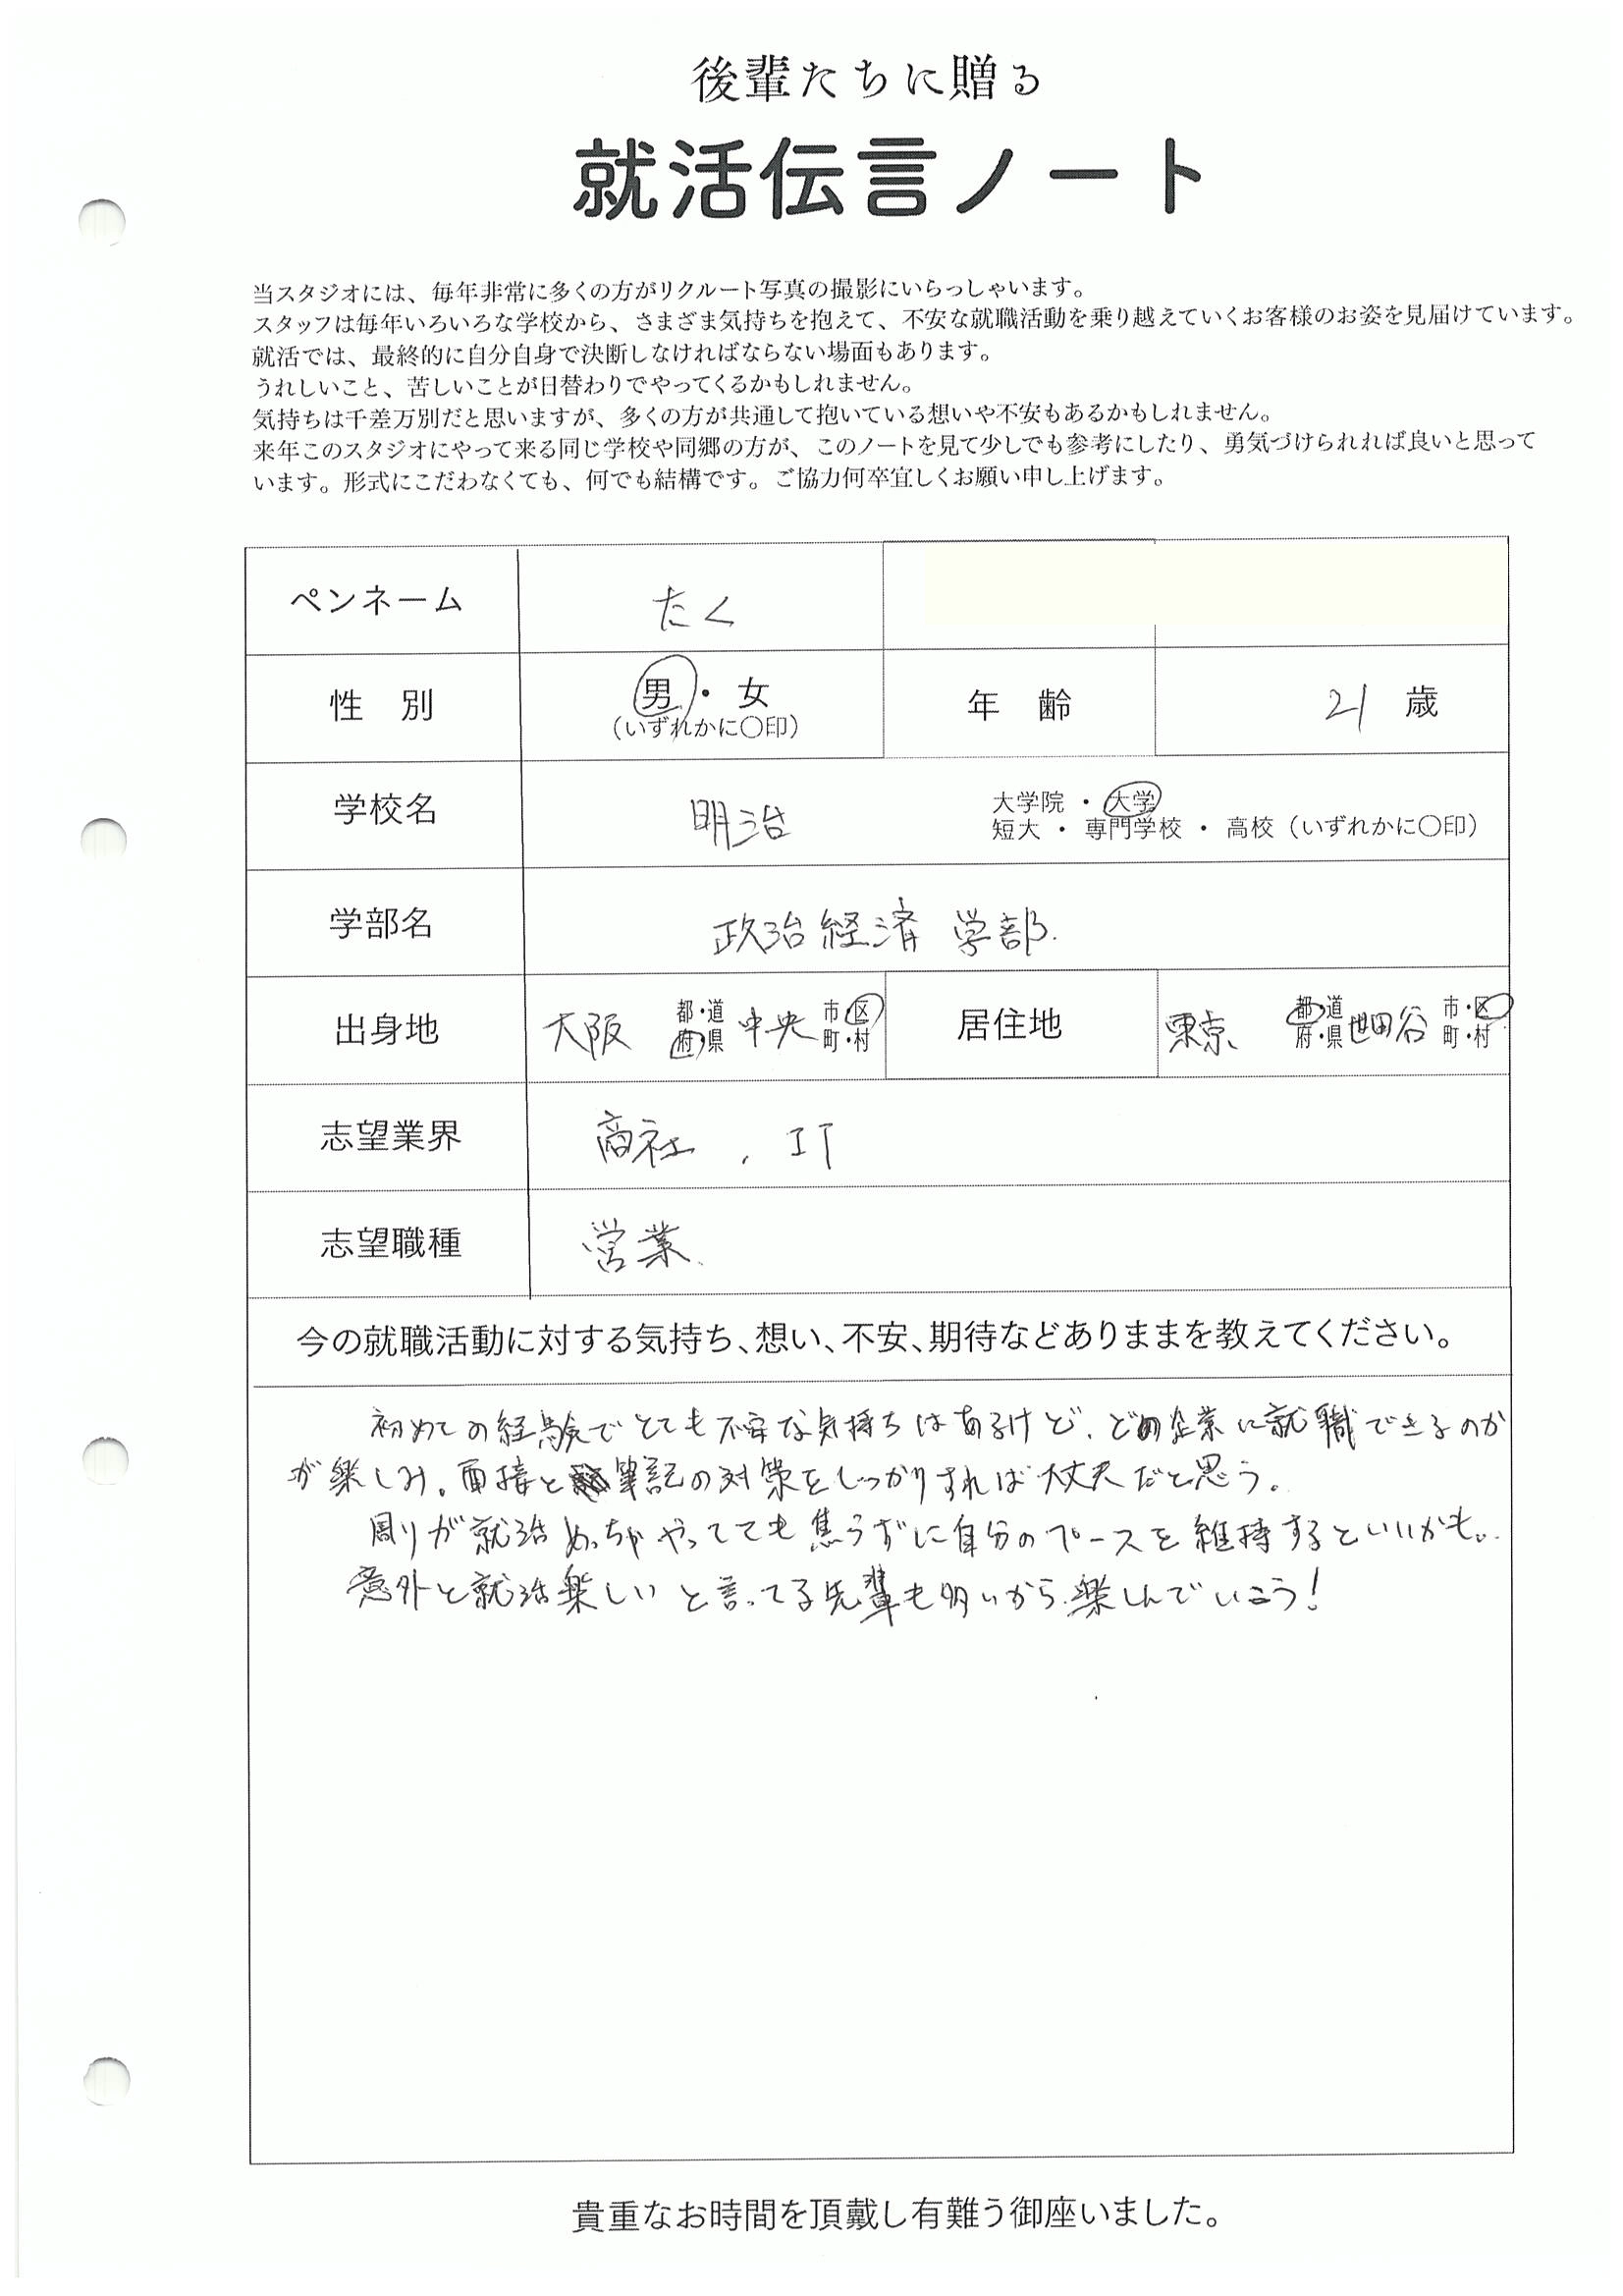 後輩たちに贈る
就活伝言ノート
当スタジオには、毎年非常に多くの方がリクルート写真の撮影にいらっしゃいます。
スタッフは毎年いろいろな学校から、さまざま気持ちを抱えて、不安な就職活動を乗り越えていくお客様のお姿を見届けています。
就活では、最終的に自分自身で決断しなければならない場面もあります。
うれしいこと、苦しいことが日替わりでやってくるかもしれません。
気持ちは千差万別だと思いますが、多くの方が共通して抱いている想いや不安もあるかもしれません。
来年このスタジオにやって来る同じ学校や同郷の方が、このノートを見て少しでも参考にしたり、勇気づけられれば良いと思って
います。形式にこだわなくても、何でも結構です。ご協力何卒宜しくお願い申し上げます。
ペンネーム たく
性 別 男・女 年 齢 21 歳
(いずれかに〇印)
学校名 明治 大学院・大学
短大・専門学校・高校(いずれかに〇印)
学部名 政治経済 学部.
出身地 大阪 都・道 府・県 中央 市・区 町・村 居住地 東京 都・道 府・県 世田谷 市・区 町・村
志望業界 商社 、IT
志望職種 営業
今の就職活動に対する気持ち、想い、不安、期待などありままを教えてください。
初めての経験でとても不安な気持ちはあるけど、どの企業に就職できるのか
が楽しみ。面接と筆記の対策をしっかりすれば大丈夫だと思う。
周りが就活めっちゃやってても焦らずに自分のペースを維持するといいかも。
意外と就活楽しいと言ってる先輩も多いから楽しんでいこう!
貴重なお時間を頂戴し有難う御座いました。